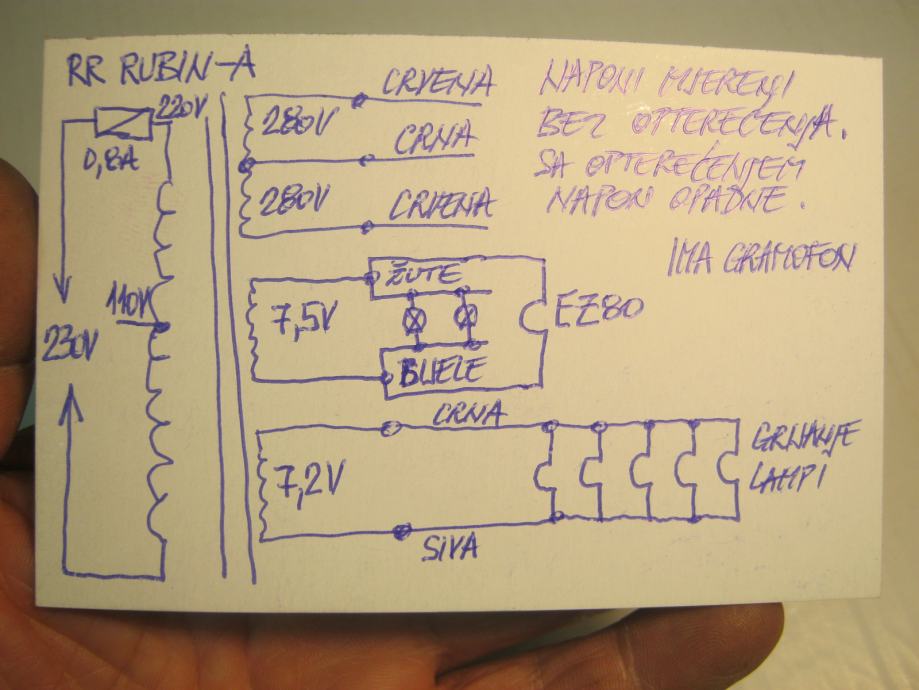 RR RUBIN-A
220V
0,8A
110V
230V
280V
280V
CRVENA
CRNA
CRVENA
NAPONI MJERENI
BEZ OPTEREĆENJA.
SA OPTEREĆENJEM
NAPON OPADNE.
IMA GRAMOFON
7,5V
ŽUTE
BIJELE
EZ80
7,2V
CRNA
SIVA
GRIJANJE
LAMPI